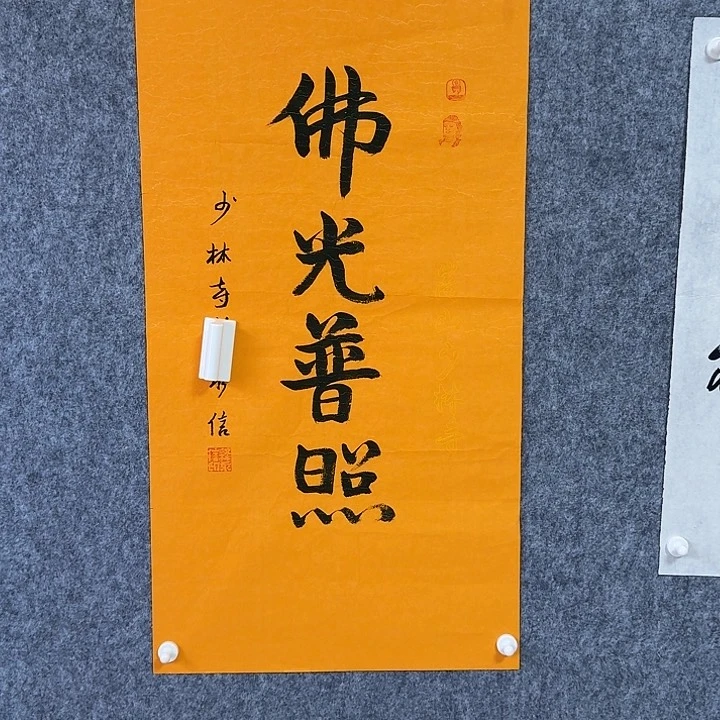 佛光普照
少林寺
信